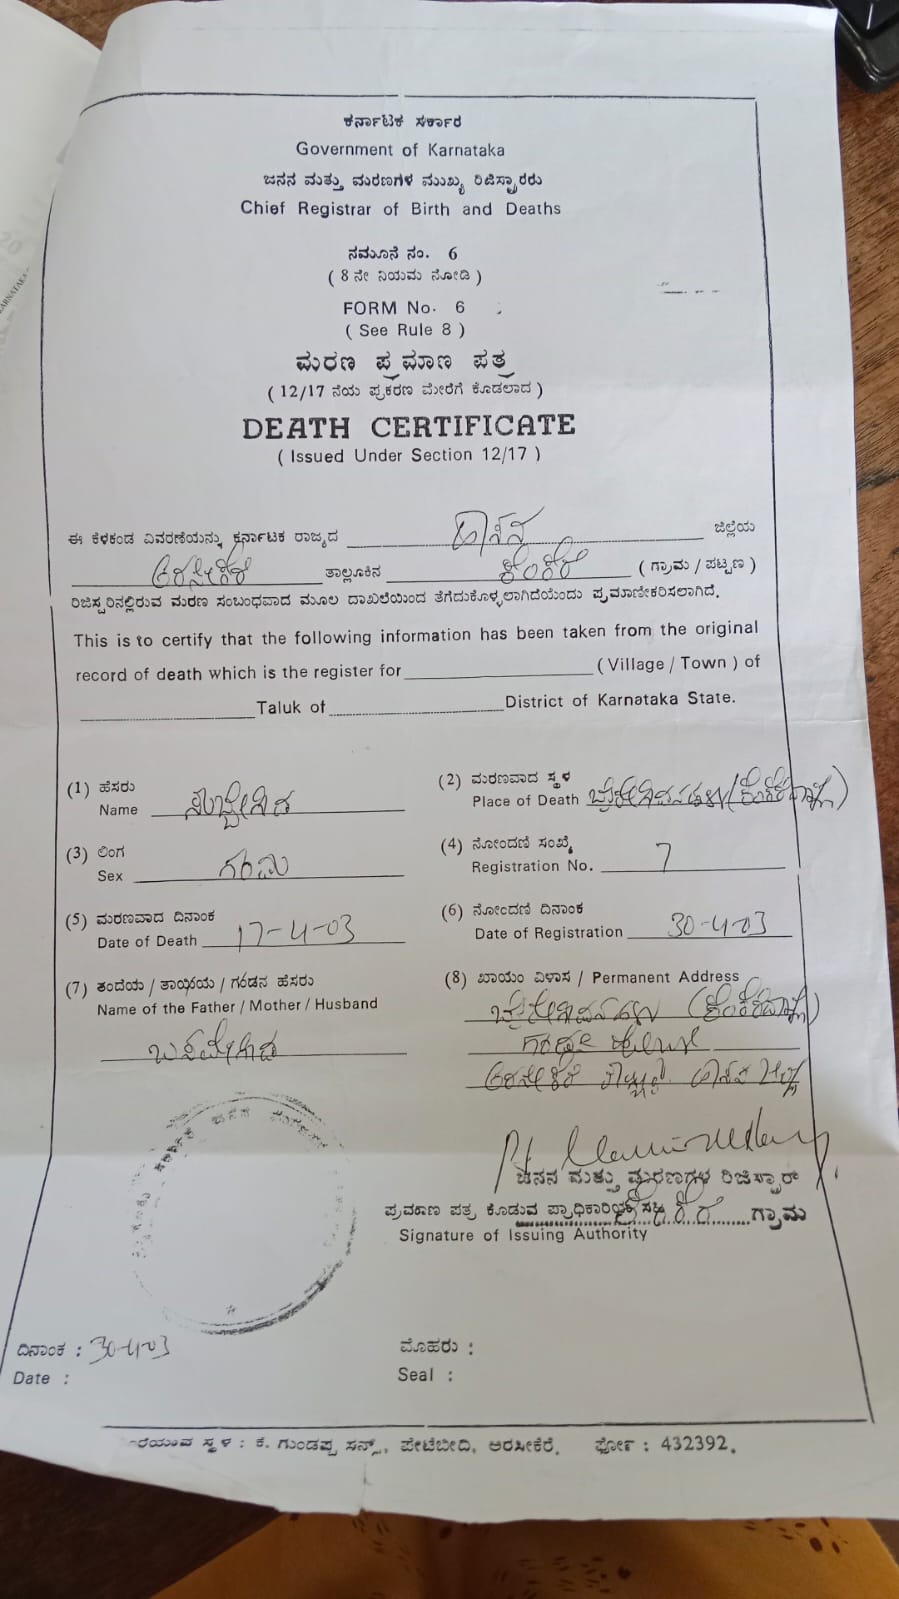 ಕರ್ನಾಟಕ ಸರ್ಕಾರ
Government of Karnataka
ಜನನ ಮತ್ತು ಮರಣಗಳ ಮುಖ್ಯ ರಿಜಿಸ್ಟ್ರಾರರು
Chief Registrar of Birth and Deaths
ನಮೂನೆ ನಂ. 6
( 8 ನೇ ನಿಯಮ ನೋಡಿ )
FORM No. 6
( See Rule 8 )
ಮರಣ ಪ್ರಮಾಣ ಪತ್ರ
( 12/17 ನೆಯ ಪ್ರಕರಣ ಮೇರೆಗೆ ಕೊಡಲಾದ )
DEATH CERTIFICATE
( Issued Under Section 12/17 )
ಈ ಕೆಳಕಂಡ ವಿವರಣೆಯನ್ನು ಕರ್ನಾಟಕ ರಾಜ್ಯದ ಹಾಸನ ಜಿಲ್ಲೆಯ
ಅರಸೀಕೆರೆ ತಾಲ್ಲೂಕಿನ ( ಗ್ರಾಮ / ಪಟ್ಟಣ )
ರಿಜಿಸ್ಟರಿನಲ್ಲಿರುವ ಮರಣ ಸಂಬಂಧವಾದ ಮೂಲ ದಾಖಲೆಯಿಂದ ತೆಗೆದುಕೊಳ್ಳಲಾಗಿದೆಯೆಂದು ಪ್ರಮಾಣೀಕರಿಸಲಾಗಿದೆ.
This is to certify that the following information has been taken from the original
record of death which is the register for ( Village / Town ) of
Taluk of District of Karnataka State.
(1) ಹೆಸರು
Name
(2) ಮರಣವಾದ ಸ್ಥಳ
Place of Death
(3) ಲಿಂಗ
Sex ಗಂಡು
(4) ನೋಂದಣಿ ಸಂಖ್ಯೆ
Registration No. 7
(5) ಮರಣವಾದ ದಿನಾಂಕ
Date of Death 17-4-03
(6) ನೋಂದಣಿ ದಿನಾಂಕ
Date of Registration 30-4-03
(7) ತಂದೆಯ / ತಾಯಿಯ / ಗಂಡನ ಹೆಸರು
Name of the Father / Mother / Husband
(8) ಖಾಯಂ ವಿಳಾಸ / Permanent Address
ಅರಸೀಕೆರೆ ತಾಲ್ಲೂಕು ಹಾಸನ ಜಿಲ್ಲೆ
ಜನನ ಮತ್ತು ಮರಣಗಳ ರಿಜಿಸ್ಟ್ರಾರ್
ಪ್ರಮಾಣ ಪತ್ರ ಕೊಡುವ ಪ್ರಾಧಿಕಾರಿಯ ಸಹಿ ಗ್ರಾಮ
Signature of Issuing Authority
ದಿನಾಂಕ : 30-4-03
Date :
ಮೊಹರು :
Seal :
ಸ್ಥಳ : ಕೆ. ಗುಂಡಪ್ಪ ಸನ್ಸ್, ಪೇಟೆಬೀದಿ, ಅರಸೀಕೆರೆ. ಫೋರ್ : 432392.